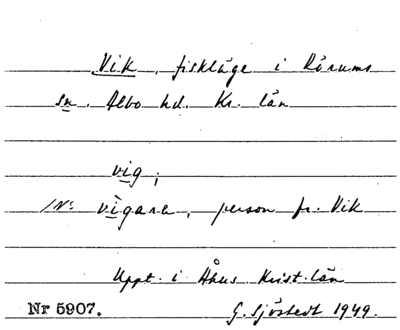 Vik, fiskläge i Rörums
sn. Albo hd. Kr. län
vig;
vigara, person fr. Vik
Uppt. i Åhus Krist. län
Nr 5907. G. Sjöstedt 1949.